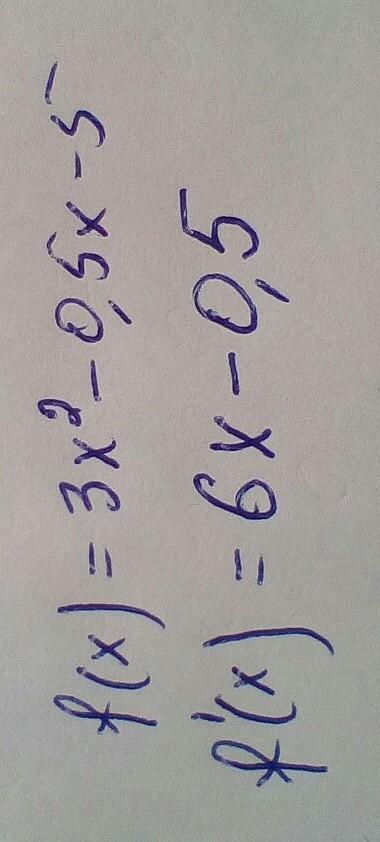 f(x) = 3x² - 0,5x - 5
f'(x) = 6x - 0,5